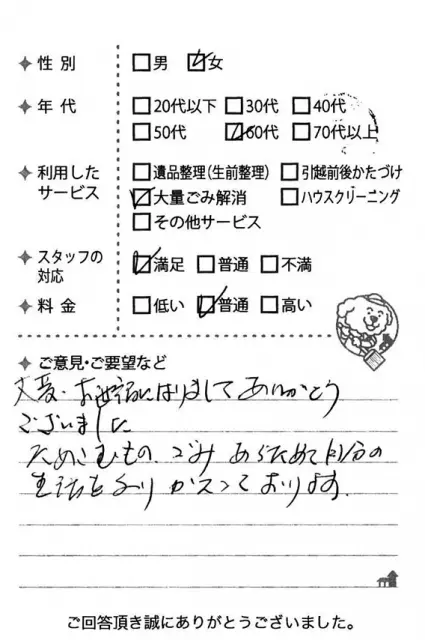 ✦ 性別 □男 ☑女
✦ 年代 □20代以下 □30代 □40代
□50代 ☑60代 □70代以上
✦ 利用したサービス □遺品整理(生前整理) □引越前後かたづけ
☑大量ごみ解消 □ハウスクリーニング
□その他サービス
✦ スタッフの対応 ☑満足 □普通 □不満
✦ 料金 □低い ☑普通 □高い
✦ ご意見・ご要望など
大変・お世話になりまして ありがとう
ございました
ためこむもの、ごみ あらためて自分の
生活をふりかえって おります。
ご回答頂き誠にありがとうございました。